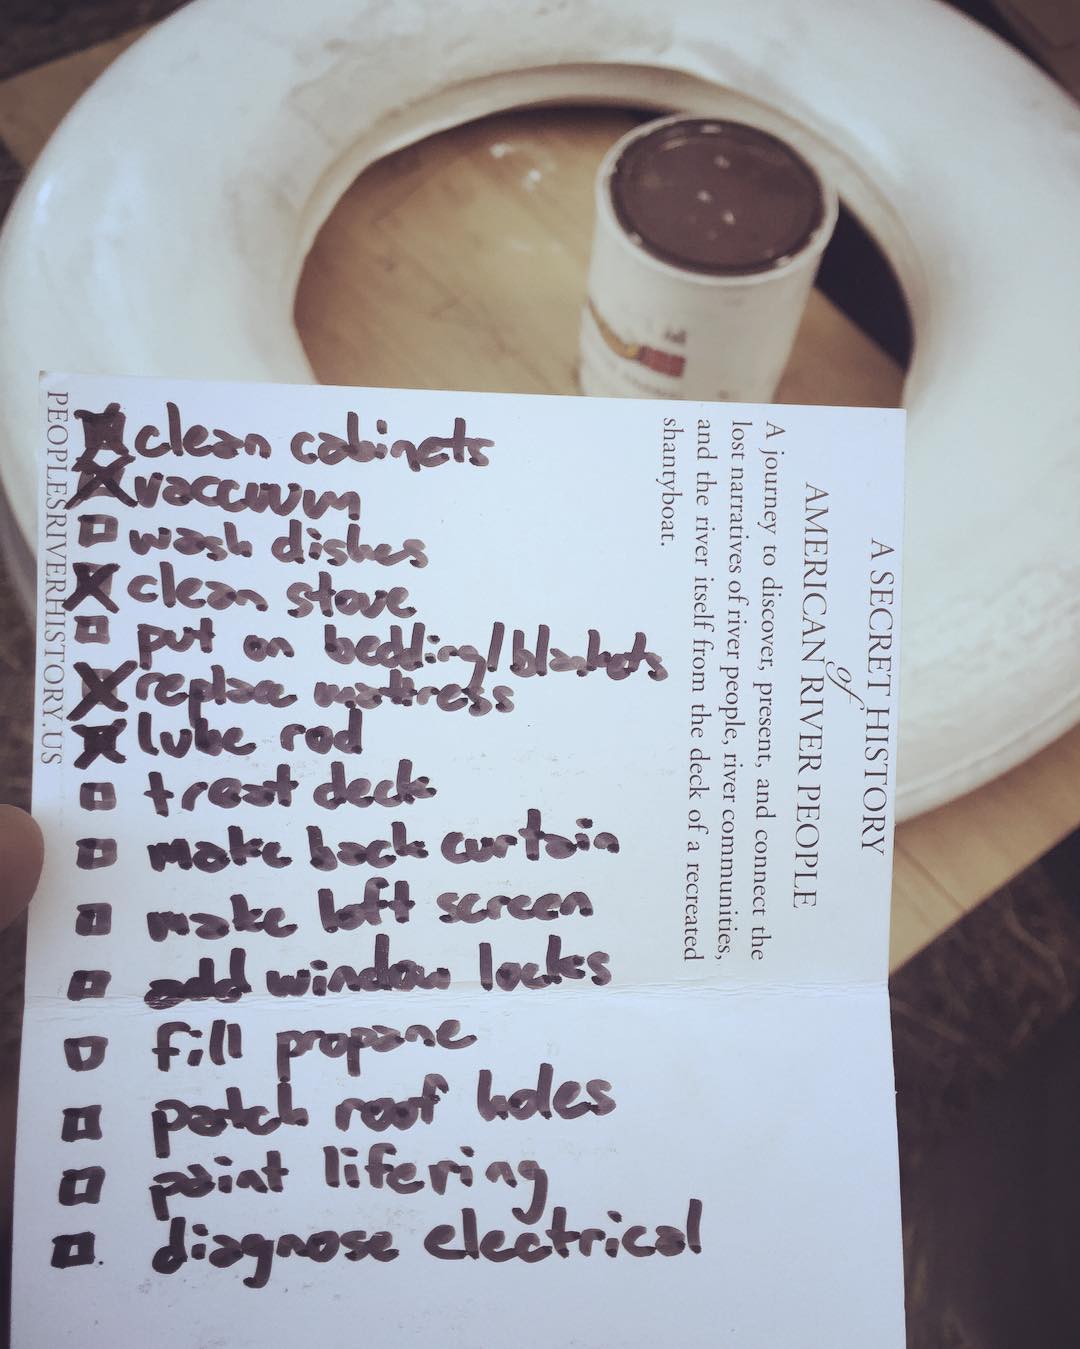 clean cabinets
vaccuum
wash dishes
clean stove
put on bedding/blankets
replace mattress
lube rod
treat deck
make back curtain
make loft screen
add window locks
fill propane
patch roof holes
paint lifering
diagnose electrical
A SECRET HISTORY
of
AMERICAN RIVER PEOPLE
A journey to discover, present, and connect the
lost narratives of river people, river communities,
and the river itself from the deck of a recreated
shantyboat.
PEOPLESRIVERHISTORY.US